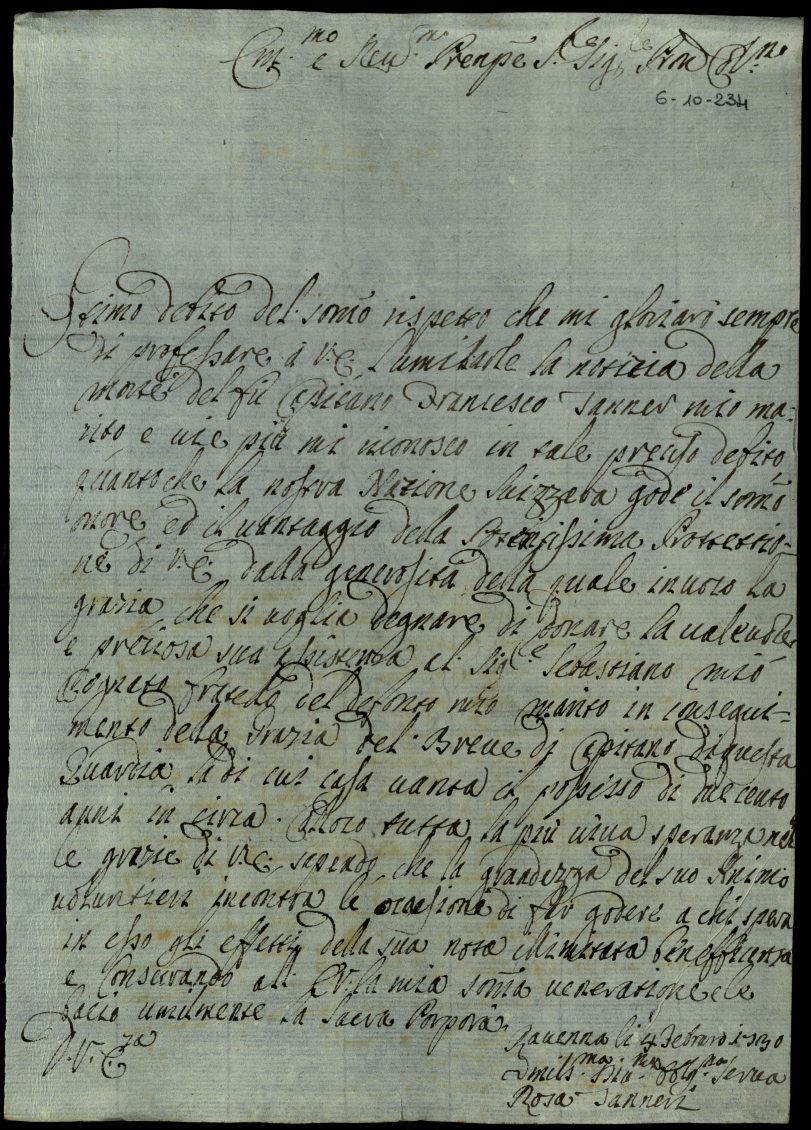 Em.mo e Reu.mo Prenpe S.re Sig.re Pron Col.mo
6-10-234
Stimo debito del somo rispetto che mi gloriarò sempre
di professare à V:E: l'umiliarle la notizia della
morte del fù Capitano Francesco Tanner mio ma-
rito e uie più mi riconosco in tale preciso debito
quanto che la nostra Nazione Suizzera gode il somo
onore ed il uantaggio della Potentissima Protettio-
ne di V:E: dalla generosità della quale inuoco la
grazia che si uoglia degnare di donare la ualeuole
e preziosa sua assistenza al Sig.e Sebastiano mio
Cognato fratello del defonto mio marito in consegui-
mento della Grazia del Breue di Capitano di questa
Guardia la di cui casa uanta il possesso di due cento
anni in circa. Colloco tutta la più uiua speranza nel-
le grazie di V:E: sapendo che la grandezza del suo Animo
uoluntieri incontra le occasioni di far godere a chi spera
in esso gli effetti della sua nota illimitata beneficenza
e conseruando all' E.V. la mia soma ueneratione le
bacio umilmente la Sacra Porpora
D. V. E.za
Rauenna li 4 Febraro 1730
Umils.ma Diu.ma Oblig.ma Serua
Rosa Tanneri